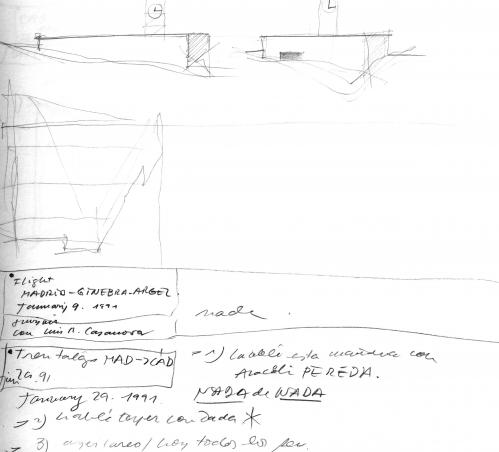 Flight
MADRID-GINEBRA-ARGEL.
January 9. 1991
con Luis R. Casanova
nada.
Tren talgo MAD->CÁD
29.91
January 29. 1991.
1) hablé esta mañana con
Araceli PEREDA.
NADA de NADA
-> 2) hablé ayer con Dada *
-> 3) hoy todos los